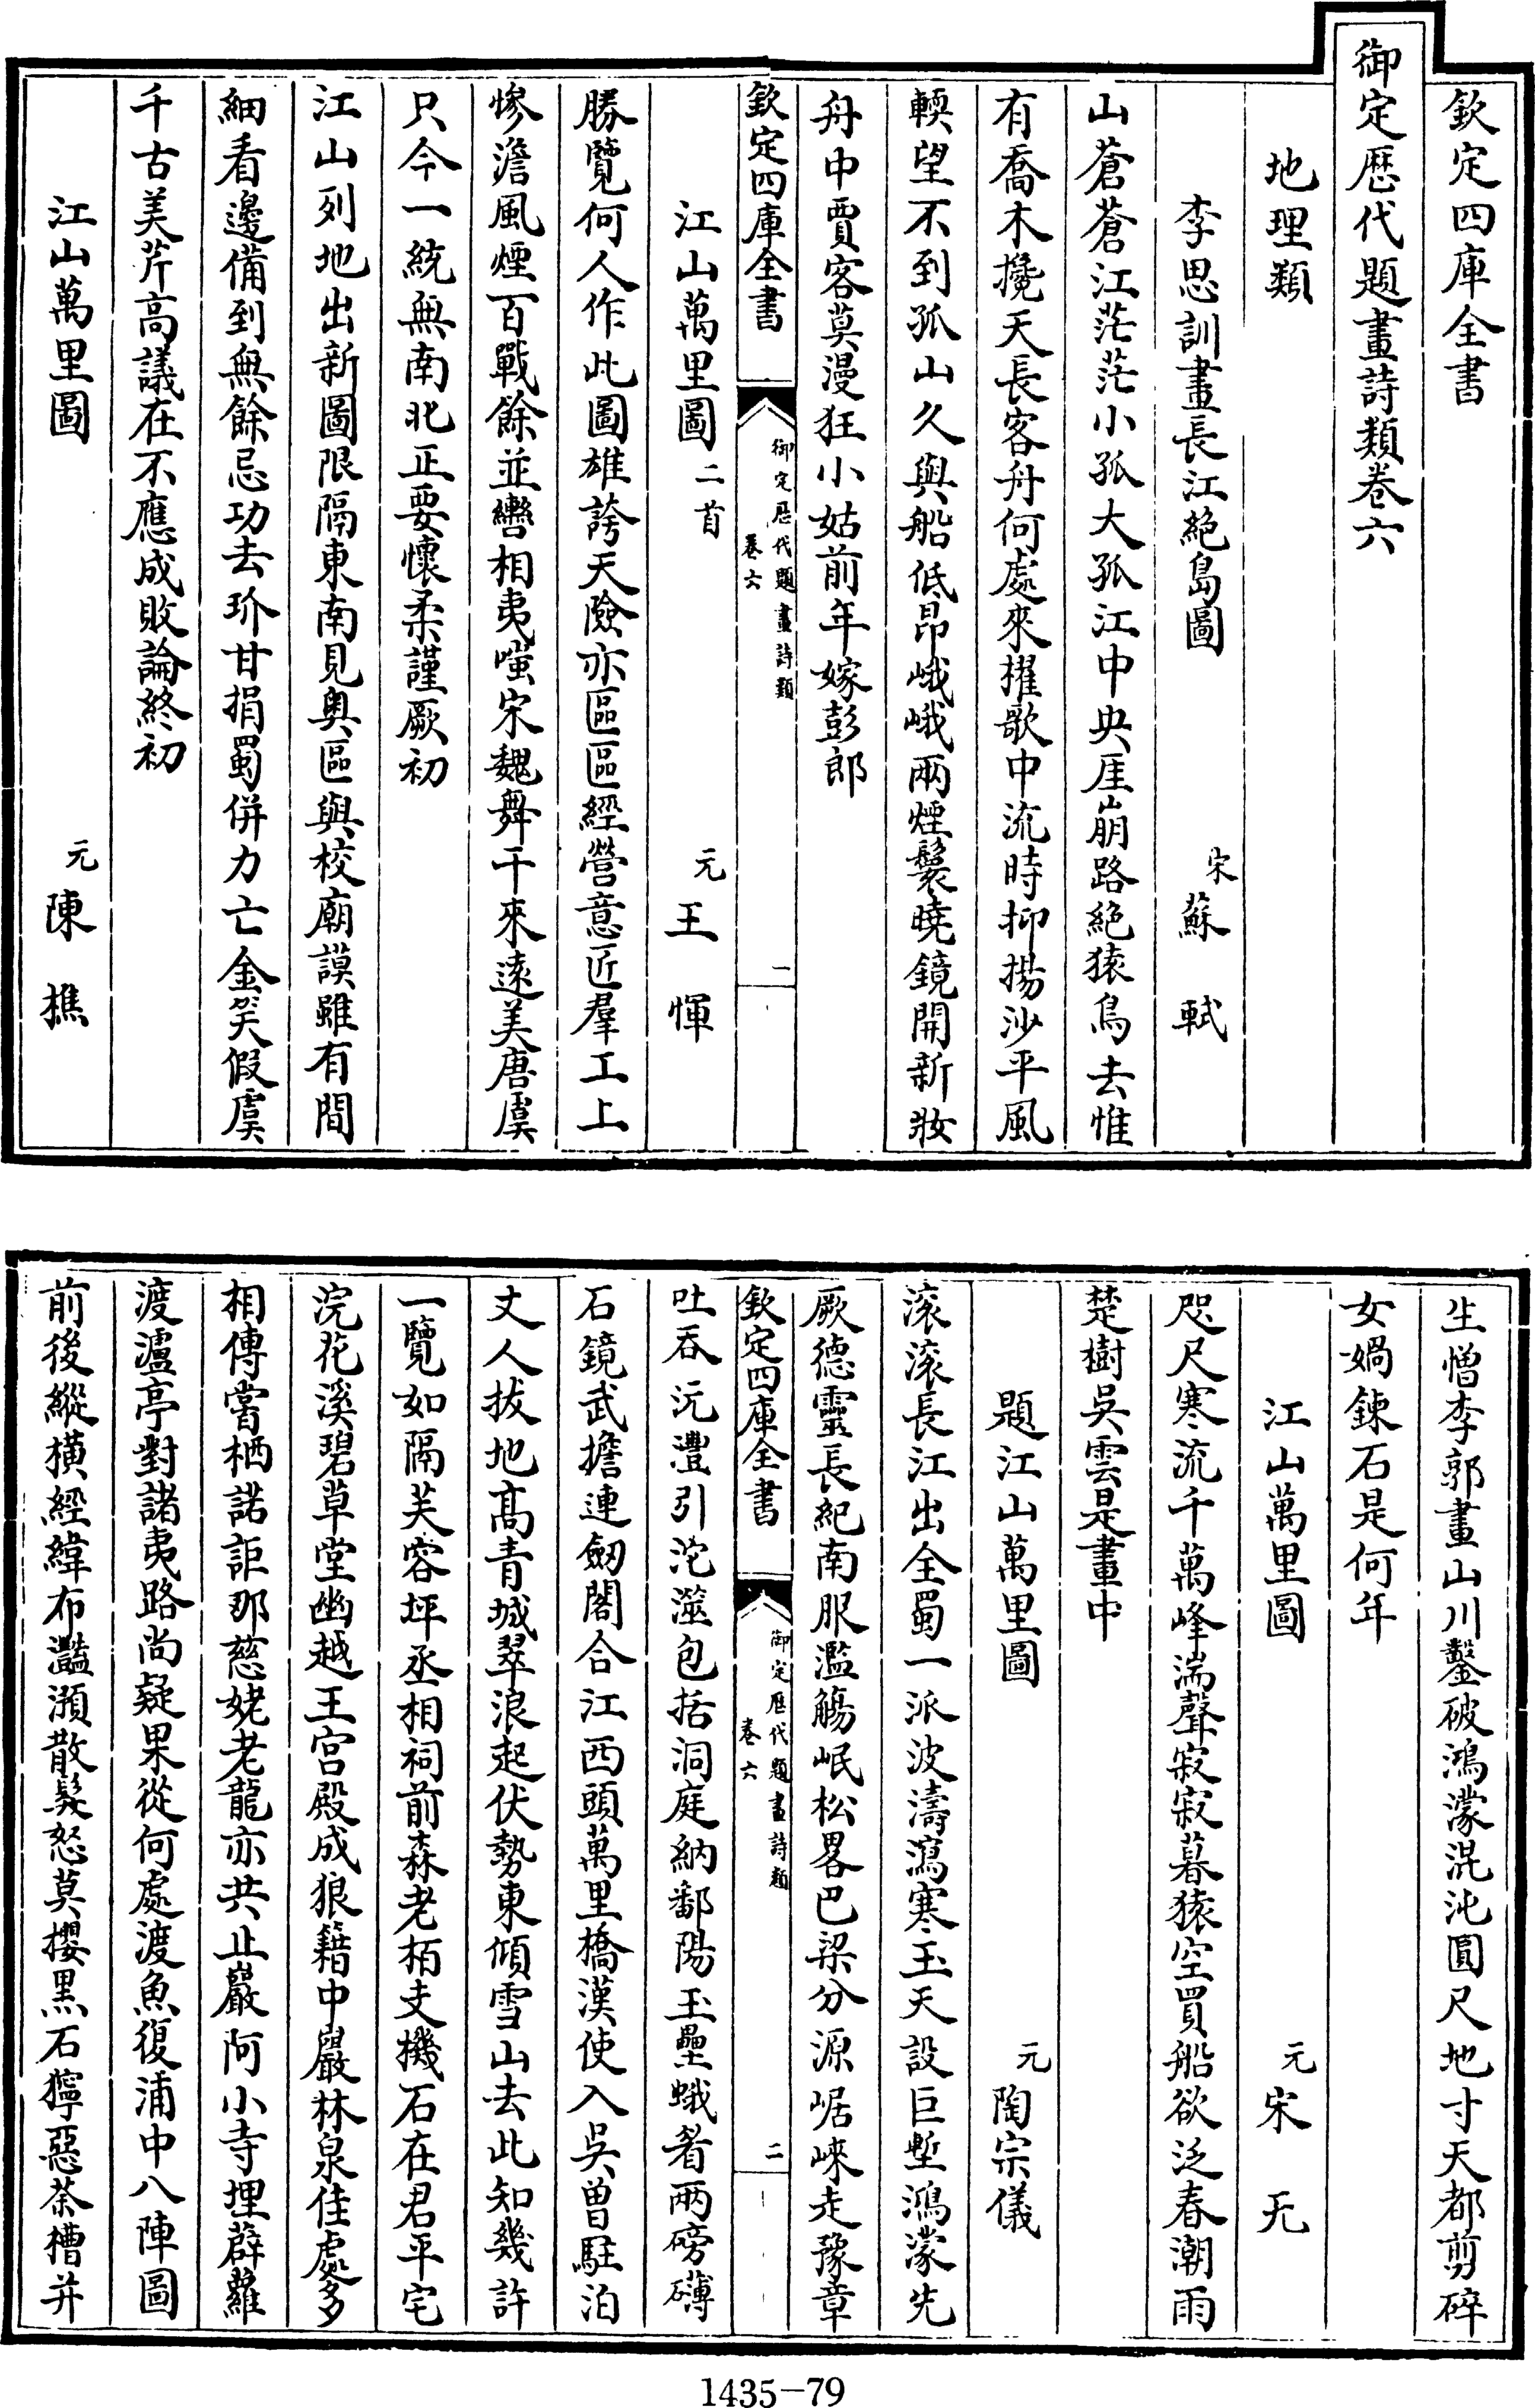 欽定四庫全書
御定歷代題畫詩類卷六
地理類
李思訓畫長江絕島圖 宋 蘇軾
山蒼蒼江茫茫小孤大孤江中央厓崩路絕猿鳥去惟
有喬木攙天長客舟何處來櫂歌中流時抑揚沙平風
輭望不到孤山久與船低昂峨峨兩煙鬟曉鏡開新妝
舟中賈客莫漫狂小姑前年嫁彭郎
欽定四庫全書 御定歷代題畫詩類 卷六 一
江山萬里圖二首 元 王惲
勝覽何人作此圖雄誇天險亦區區經營意匠羣工上
慘澹風煙百戰餘並轡相夷嗤宋魏舞干來遠美唐虞
只今一統無南北正要懷柔謹厥初
江山列地出新圖限隔東南見奧區與校廟謨雖有間
細看邊備到無餘忌功去玠甘捐蜀併力亡金笑假虞
千古美芹高議在不應成敗論終初
江山萬里圖 元 陳樵
生憎李郭畫山川鑿破鴻濛混沌圓尺地寸天都剪碎
女媧鍊石是何年
江山萬里圖 元 宋无
咫尺寒流千萬峰湍聲寂寂暮猿空買船欲泛春潮雨
楚樹吳雲是畫中
題江山萬里圖 元 陶宗儀
滚滚長江出全蜀一派波濤瀉寒玉天設巨塹鴻濛先
厥德靈長紀南服濫觴岷松畧巴梁分源崌崍走豫章
欽定四庫全書 御定歷代題畫詩類 卷六 二
吐吞沅灃引沱澨包括洞庭納鄱陽玉壘蛾眉兩磅礴
石鏡武擔連劒閣合江西頭萬里橋漢使入吳曾駐泊
丈人拔地高青城翠浪起伏勢東傾雪山去此知幾許
一覽如隔芙容坪丞相祠前森老栢支機石在君平宅
浣花溪碧草堂幽越王宮殿成狼籍中巖林泉佳處多
相傳嘗栖諾詎那慈姥老龍亦共止巖阿小寺埋薜蘿
渡瀘亭對諸夷路尚疑果從何處渡魚復浦中八陣圖
前後縱橫經緯布灩澦散髮怒莫攖黑石獰惡荼槽并
1435-79